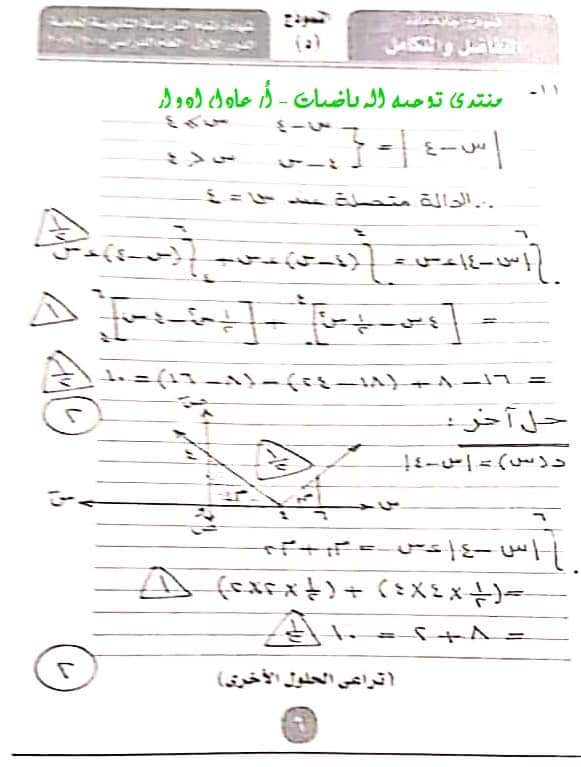 النموذج
(د)
التفاضل والتكامل
١١-
منتدى توجيه الرياضيات - أ/ عادل ادوار
|س-٤| = { س-٤ س ≥ ٤
٤-س س < ٤
∴ الدالة متصلة عند س = ٤
∫|س-٤| ءس = ∫(٤-س) ءس + ∫(س-٤) ءس
= [٤س - ١/٢ س²] + [١/٢ س² - ٤س]
= ١٦ - ٨ + (١٨ - ٢٤) - (٨ - ١٦) = ١٠
٢
حل آخر :
د(س) = |س-٤|
∫|س-٤| ءس = م١ + م٢
= (١/٢ × ٤ × ٤) + (١/٢ × ٢ × ٢)
= ٨ + ٢ = ١٠
٢
(تراعى الحلول الأخرى)
٦